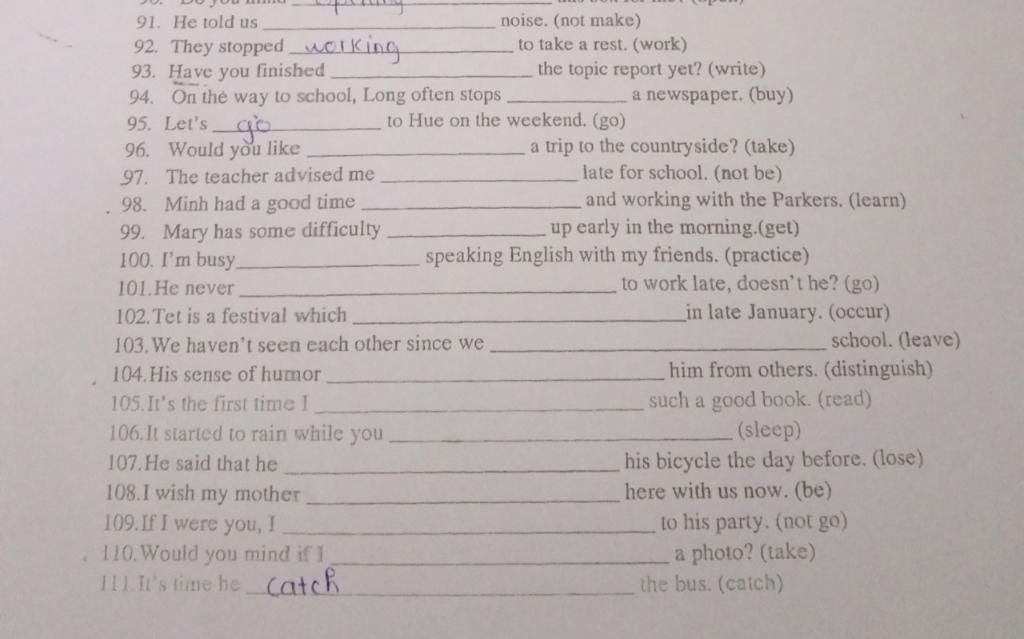 91. He told us ____________ noise. (not make)
92. They stopped working to take a rest. (work)
93. Have you finished ____________ the topic report yet? (write)
94. On the way to school, Long often stops ____________ a newspaper. (buy)
95. Let's go to Hue on the weekend. (go)
96. Would you like ____________ a trip to the countryside? (take)
97. The teacher advised me ____________ late for school. (not be)
98. Minh had a good time ____________ and working with the Parkers. (learn)
99. Mary has some difficulty ____________ up early in the morning.(get)
100. I'm busy____________ speaking English with my friends. (practice)
101.He never ____________ to work late, doesn't he? (go)
102.Tet is a festival which ____________in late January. (occur)
103.We haven't seen each other since we ____________ school. (leave)
104.His sense of humor ____________ him from others. (distinguish)
105.It's the first time I ____________ such a good book. (read)
106.It started to rain while you ____________ (sleep)
107.He said that he ____________ his bicycle the day before. (lose)
108.I wish my mother ____________ here with us now. (be)
109.If I were you, I ____________ to his party. (not go)
110.Would you mind if I ____________ a photo? (take)
111.It's time he catch the bus. (catch)